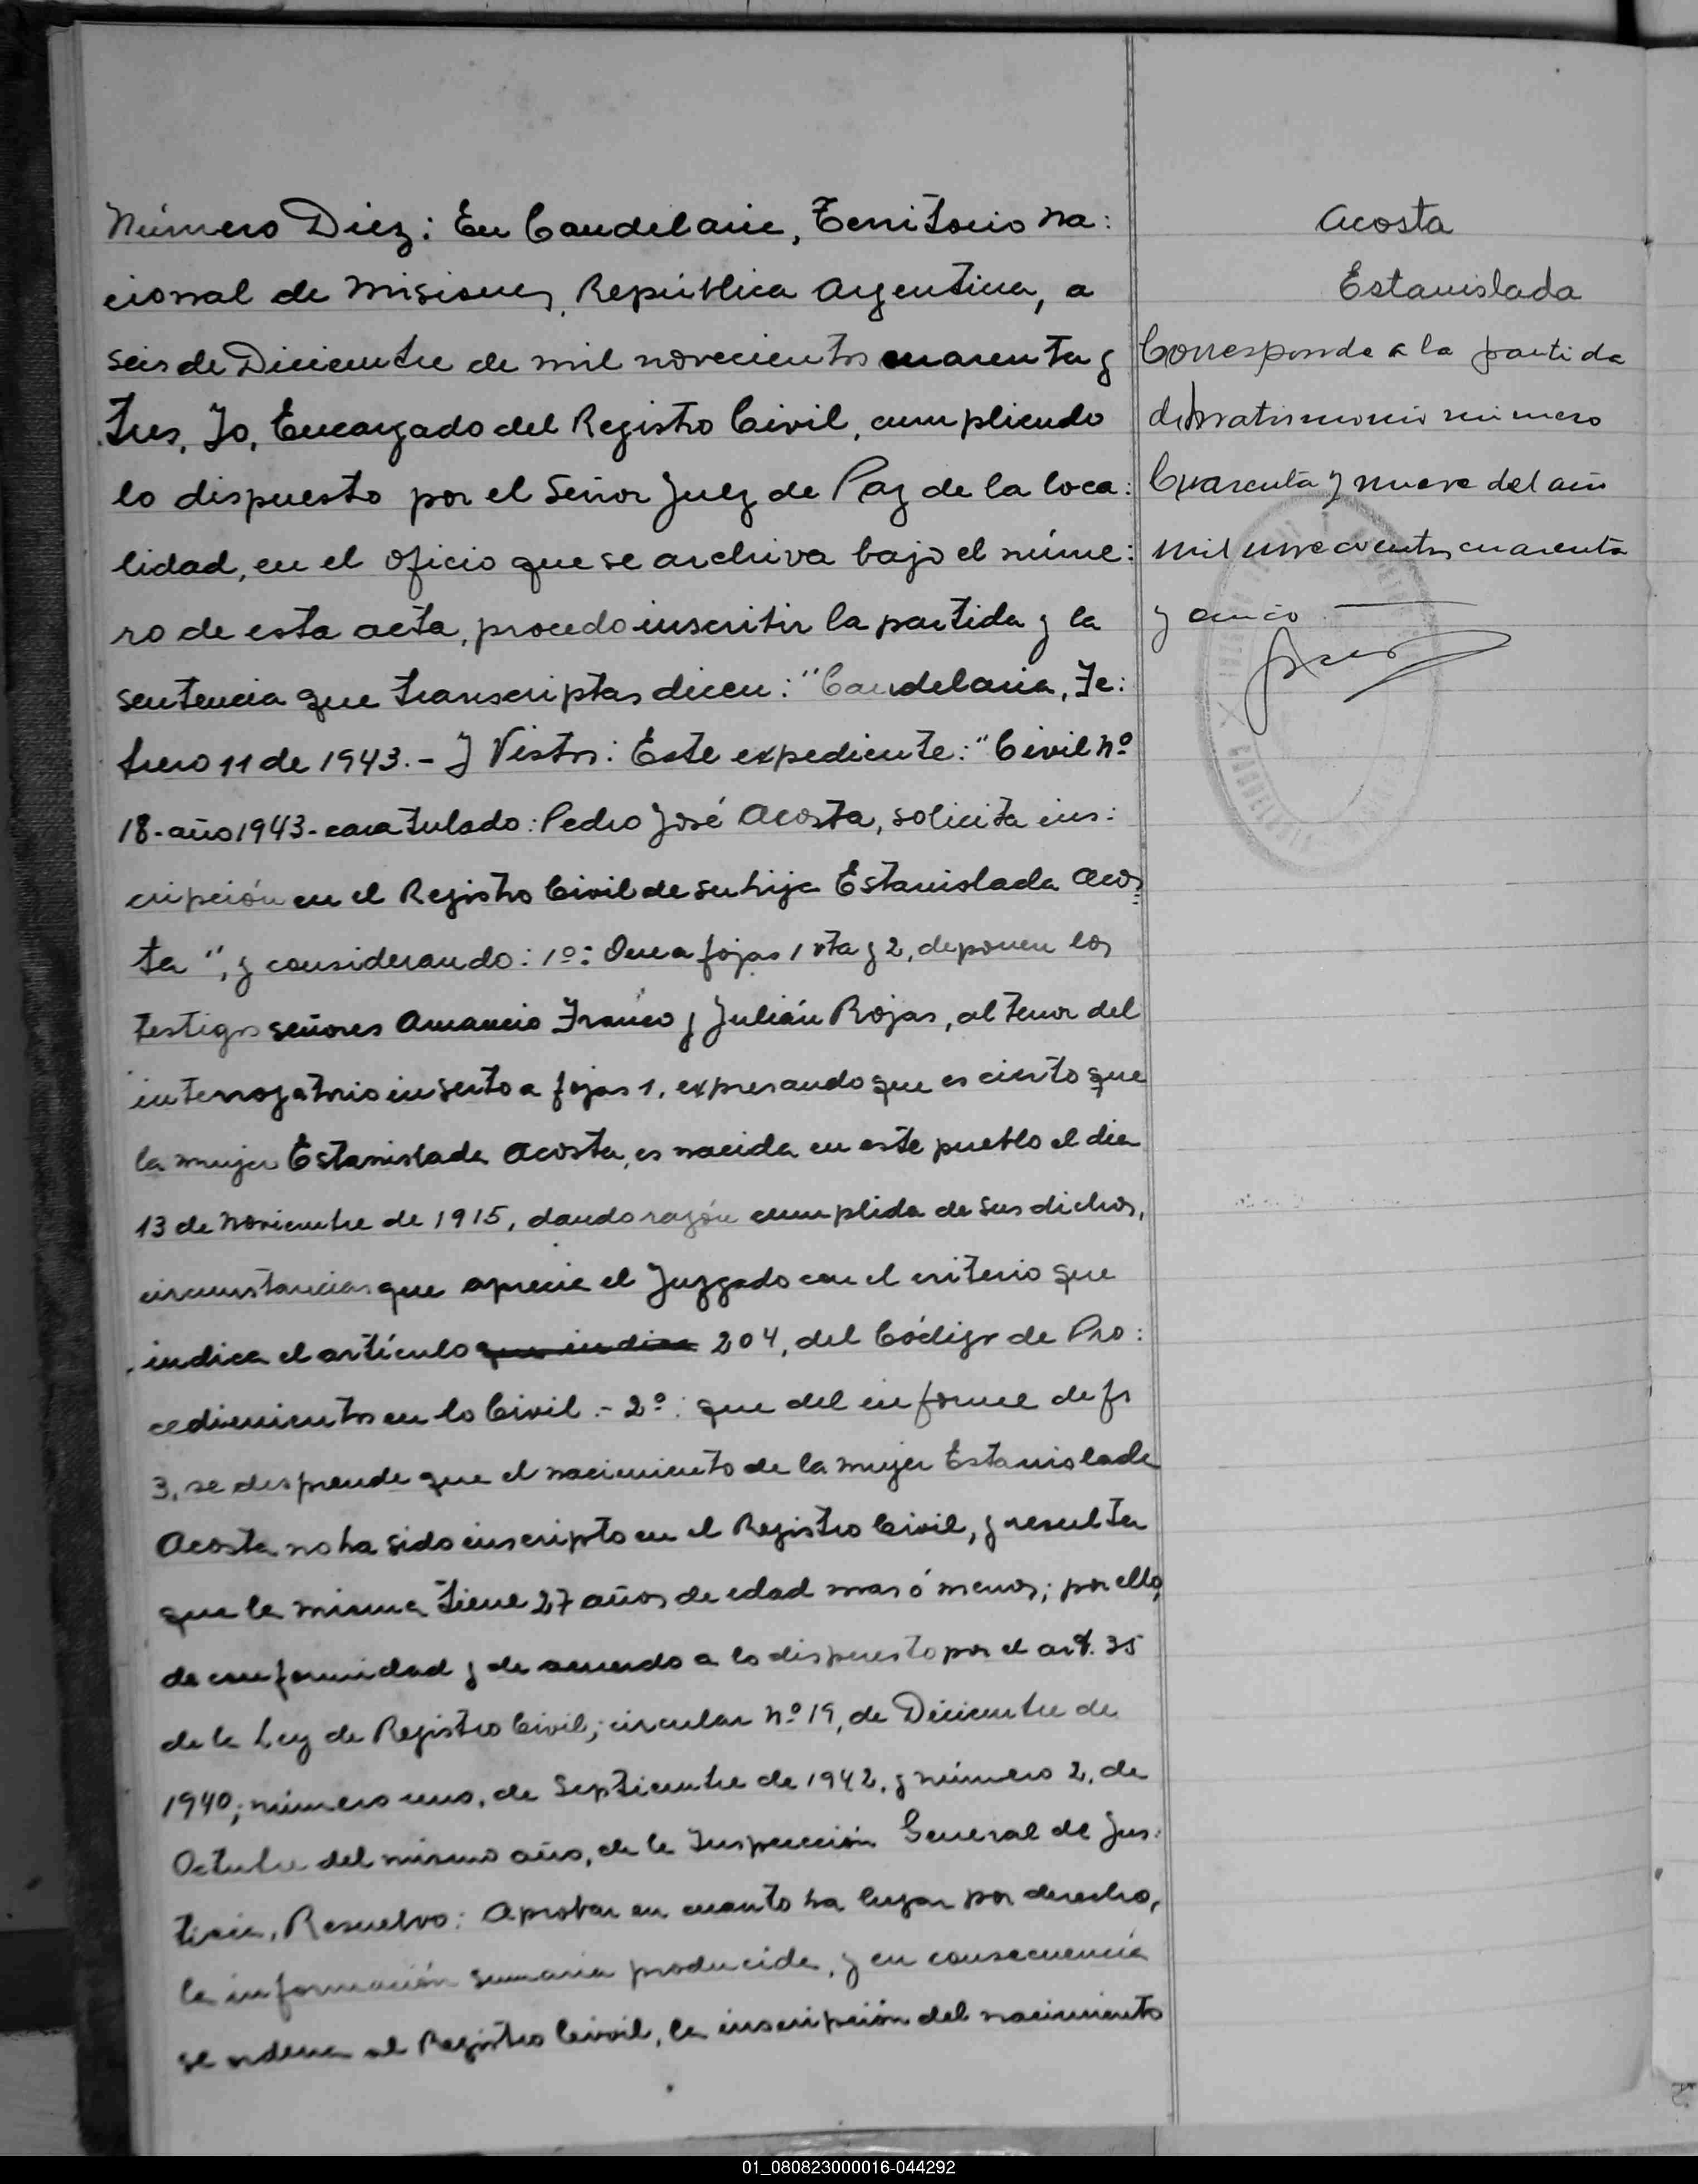 Número Diez: En Candelaria, Territorio Na:
cional de Misiones, República Argentina, a
seis de Diciembre de mil novecientos cuarenta y
tres, Yo, Encargado del Registro Civil, cumpliendo
lo dispuesto por el Señor Juez de Paz de la loca:
lidad, en el oficio que se archiva bajo el núme:
ro de esta acta, procedo inscribir la partida y la
sentencia que transcriptas dicen: "Candelaria, Fe:
brero 11 de 1943.- Y Vistos: Este expediente: "Civil Nº
18-año 1943-caratulado: Pedro José Acosta, solicita ins:
cripción en el Registro Civil de su hija Estanislada Acos=
ta", y considerando: 1º: Que a fojas 1 vta y 2, deponen los
testigos señores Amancio Franco y Julián Rojas, al tenor del
interrogatorio inserto a fojas 1, expresando que es cierto que
la mujer Estanislada Acosta, es nacida en este pueblo el dia
13 de Noviembre de 1915, dando razón cumplida de sus dichos,
circunstancias que aprecia el Juzgado con el criterio que
indica el artículo que indica 204, del Código de Pro:
cedimientos en lo Civil.- 2º: que del informe de fs
3, se desprende que el nacimiento de la mujer Estanislada
Acosta no ha sido inscripto en el Registro Civil, y resulta
que la misma tiene 27 años de edad mas ó menos; por ello,
de conformidad y de acuerdo a lo dispuesto por el art. 35
de la Ley de Registro Civil; circular Nº 19, de Diciembre de
1940; número uno, de Septiembre de 1942, y número 2, de
Octubre del mismo año, de la Inspección General de Jus:
ticia, Resuelvo: Aprobar en cuanto ha lugar por derecho,
la información sumaria producida, y en consecuencia
se ordena al Registro Civil, la inscripción del nacimiento
Acosta
Estanislada
Corresponde a la partida
de matrimonio número
Cuarenta y nueve del año
mil novecientos cuarenta
y cinco
CANDELARIA
01_080823000016-044292